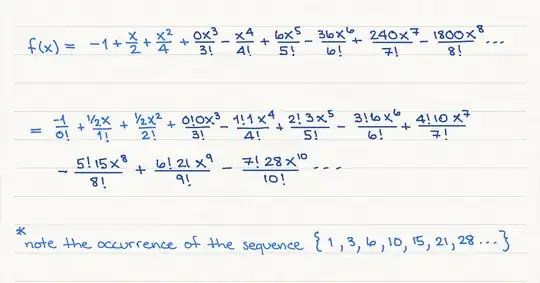 f(x) = -1 + x/2 + x²/4 + 0x³/3! - x⁴/4! + 6x⁵/5! - 36x⁶/6! + 240x⁷/7! - 1800x⁸/8! ...
= -1/0! + ½x/1! + ½x²/2! + 0!0x³/3! - 1!1x⁴/4! + 2!3x⁵/5! - 3!6x⁶/6! + 4!10x⁷/7!
- 5!15x⁸/8! + 6!21x⁹/9! - 7!28x¹⁰/10! ...
* note the occurrence of the sequence {1, 3, 6, 10, 15, 21, 28 ...}